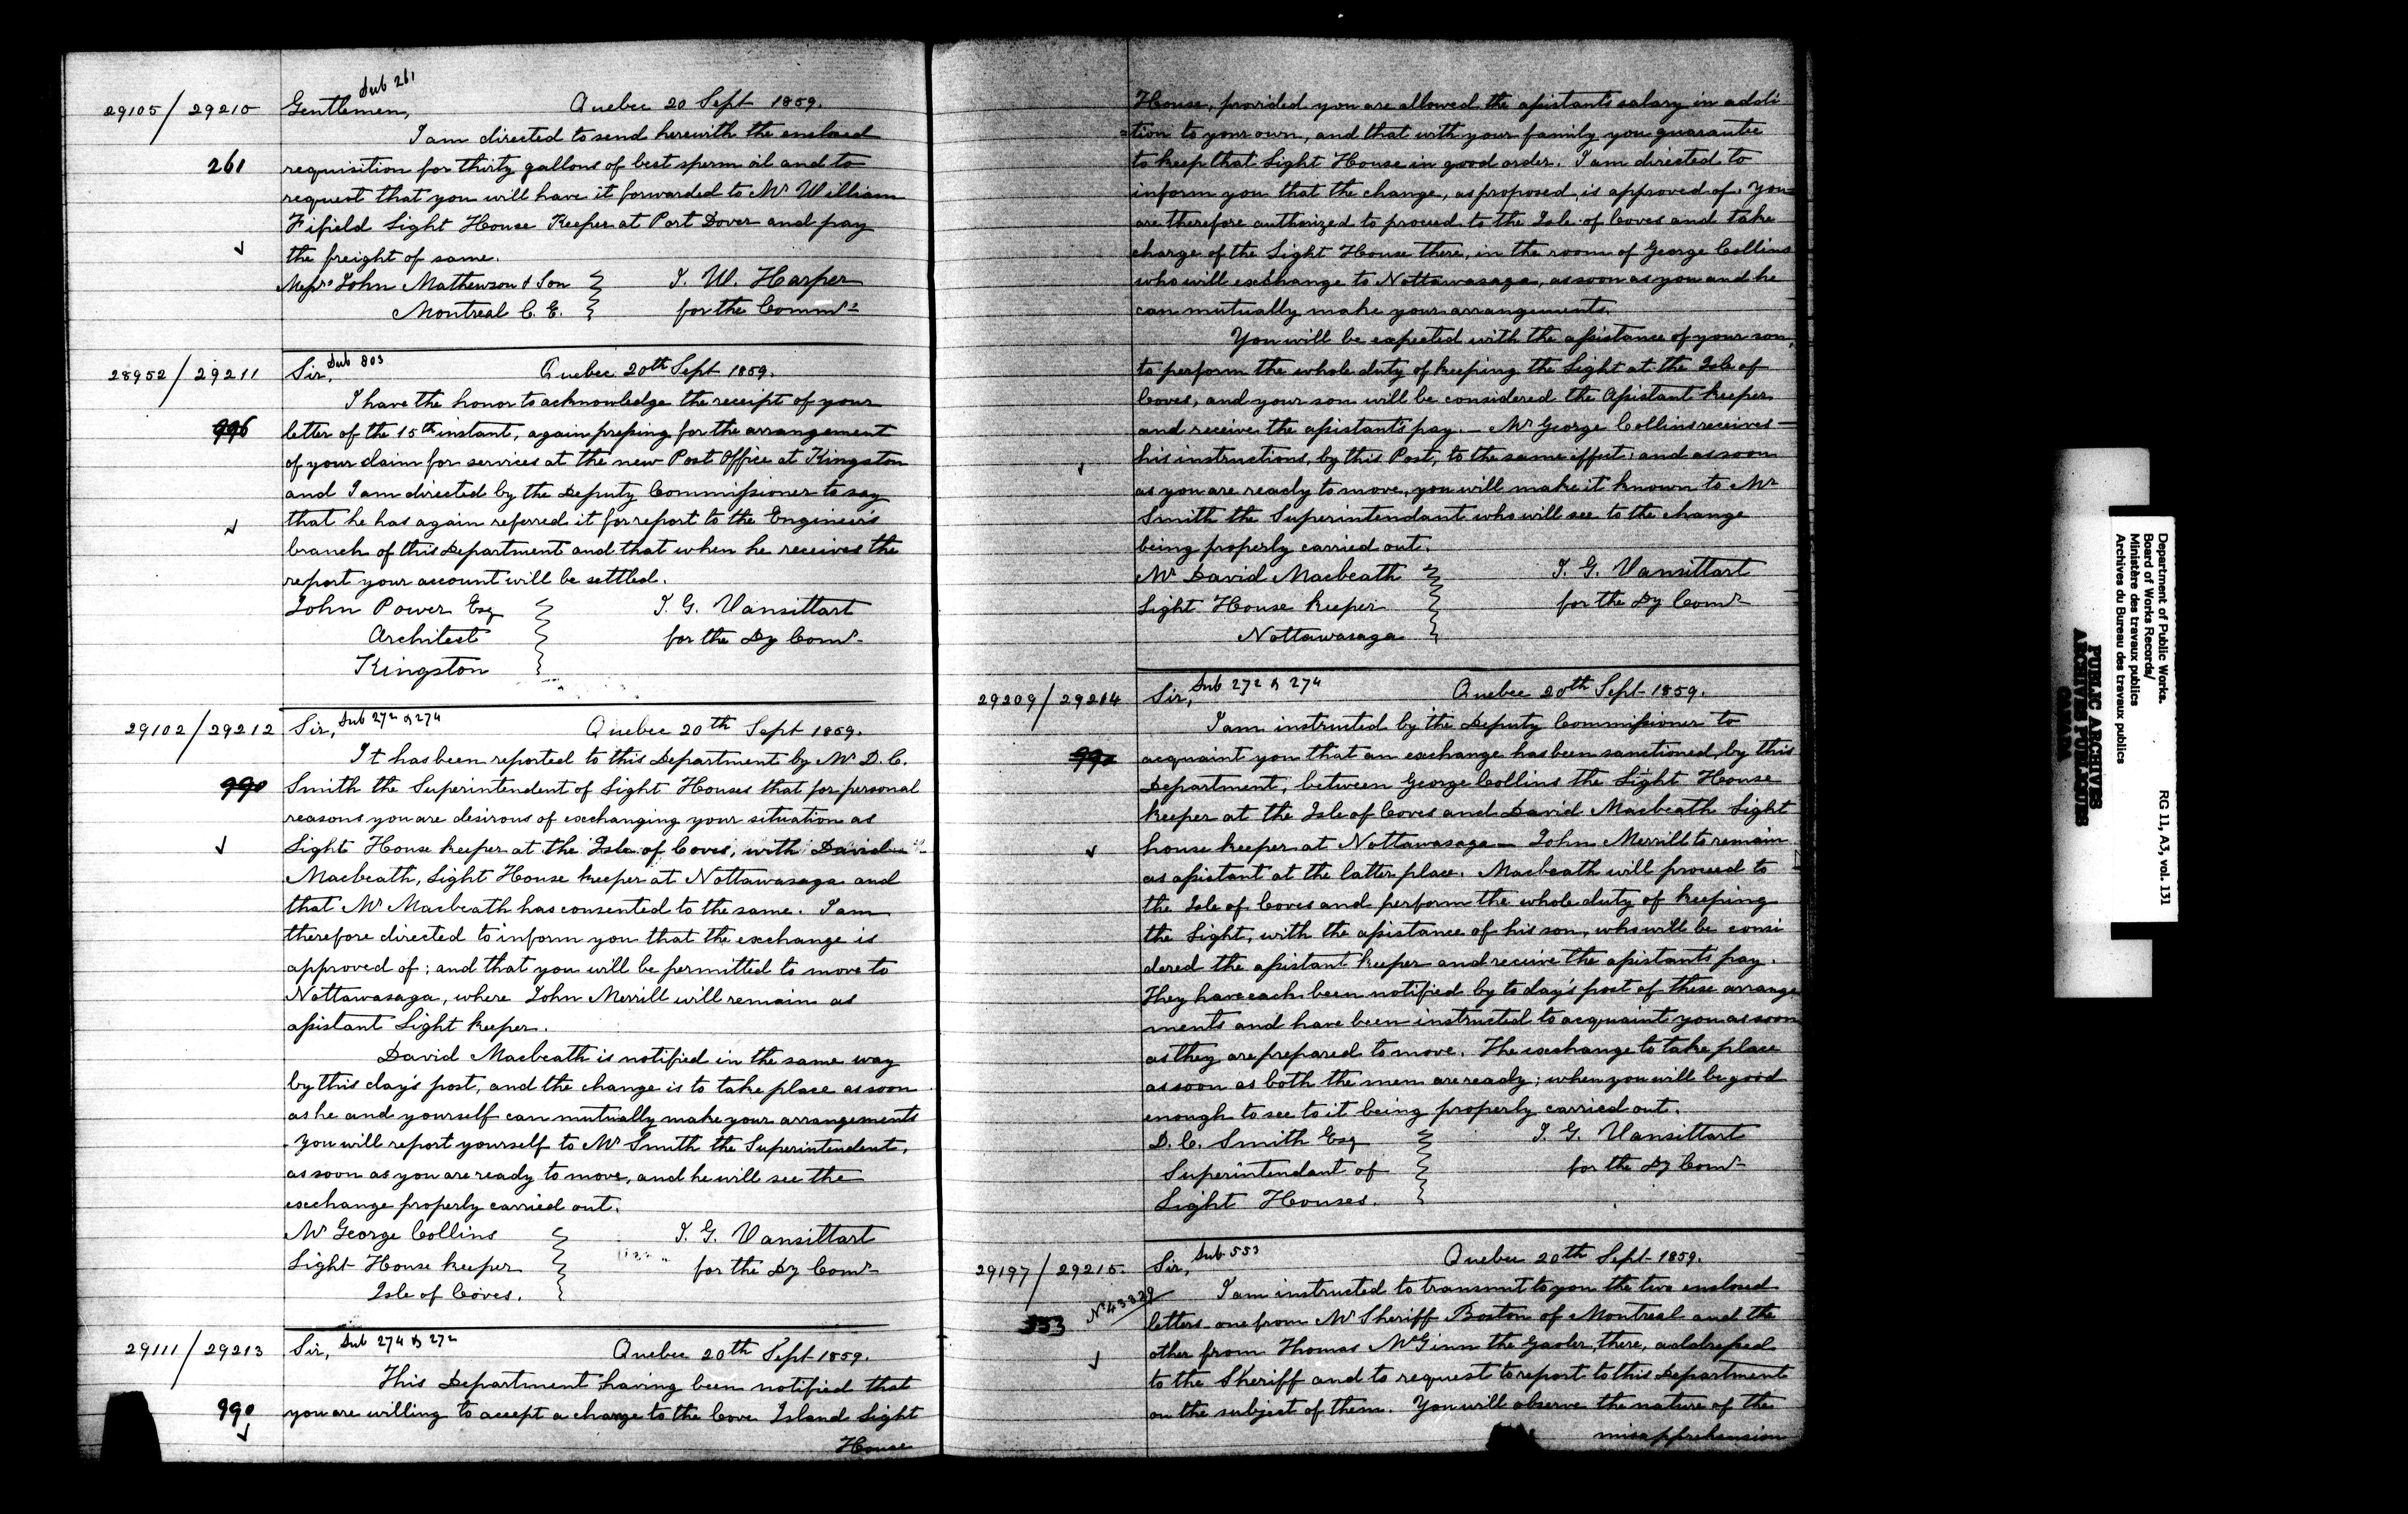 Sub 261
29105 / 29210 Gentlemen, Quebec 20 Sept 1859.
I am directed to send herewith the enclosed
261 requisition for thirty gallons of best sperm oil and to
request that you will have it forwarded to Mr William
Fifield Light House Keeper at Port Dover and pay
the freight of same.
Messrs John Mathewson & Son J. W. Harper
Montreal C. E. for the Commr
Sub 803
28952 / 29211 Sir, Quebec 20th Sept 1859.
I have the honor to acknowledge the receipt of your
996 letter of the 15th instant, again pressing for the arrangement
of your claim for services at the new Post Office at Kingston
and I am directed by the Deputy Commissioner to say
that he has again referred it for report to the Engineer's
branch of this Department and that when he receives the
report your account will be settled.
John Power Esq J. G. Vansittart
Architect for the Dy Comr
Kingston
29102 / 29212 Sir, Sub 272 & 274 Quebec 20th Sept 1859.
It has been reported to this Department by Mr D. C.
990 Smith the Superintendent of Light Houses that for personal
reasons you are desirous of exchanging your situation as
Light House keeper at the Isle of Coves, with David
Macbeath, Light House keeper at Nottawasaga and
that Mr Macbeath has consented to the same. I am
therefore directed to inform you that the exchange is
approved of; and that you will be permitted to move to
Nottawasaga, where John Merrill will remain as
assistant Light keeper.
David Macbeath is notified in the same way
by this day's post, and the change is to take place as soon
as he and yourself can mutually make your arrangements
. You will report yourself to Mr Smith the Superintendent,
as soon as you are ready to move, and he will see the
exchange properly carried out.
Mr George Collins J. G. Vansittart
Light House keeper for the Dy Comr
Isle of Coves.
29111 / 29213 Sir, Sub 274 & 272 Quebec 20th Sept 1859.
This Department having been notified that
990 you are willing to accept a charge to the Cove Island Light
House
House, provided you are allowed the assistant's salary in addi
=tion to your own, and that with your family you guarantee
to keep that Light House in good order. I am directed to
inform you that the change, as proposed, is approved of. You
are therefore authorized to proceed to the Isle of Coves and take
charge of the Light House there, in the room of George Collins
who will exchange to Nottawasaga, as soon as you and he
can mutually make your arrangements.
You will be expected with the assistance of your son,
to perform the whole duty of keeping the Light at the Isle of
Coves, and your son will be considered the Assistant keeper
and receive the assistant's pay. — Mr George Collins receives
his instructions, by this Post, to the same effect; and as soon
as you are ready to move, you will make it known to Mr
Smith the Superintendant who will see to the change
being properly carried out.
Mr David Macbeath J. G. Vansittart
Light House keeper for the Dy Comr
Nottawasaga
29209 / 29214 Sir, Sub 272 & 274 Quebec 20th Sept 1859.
I am instructed by the Deputy Commissioner to
990 acquaint you that an exchange has been sanctioned, by this
Department, between George Collins the Light House
keeper at the Isle of Coves and David Macbeath Light
house keeper at Nottawasaga — John Merrill to remain
as assistant at the latter place. Macbeath will proceed to
the Isle of Coves and perform the whole duty of keeping
the Light, with the assistance of his son, who will be consi
dered the assistant keeper and receive the assistant's pay.
They have each been notified by to day's post of these arrange
ments and have been instructed to acquaint you as soon
as they are prepared to move. The exchange to take place
as soon as both the men are ready; when you will be good
enough to see to it being properly carried out.
D. C. Smith Esq J. G. Vansittart
Superintendant of for the Dy Comr
Light Houses.
29197 / 29215 Sir, Sub 553 Quebec 20th Sept 1859.
I am instructed to transmit to you the two enclosed
553 No 43829 letters one from Mr Sheriff Boston of Montreal and the
other from Thomas McGinn the gaoler, there, addressed
to the Sheriff and to request to report to this Department
on the subject of them. You will observe the nature of the
misapprehension
Department of Public Works.
Board of Works Records/
Ministère des travaux publics
Archives du Bureau des travaux publics
RG 11, A3, vol. 131
PUBLIC ARCHIVES
ARCHIVES PUBLIQUES
CANADA